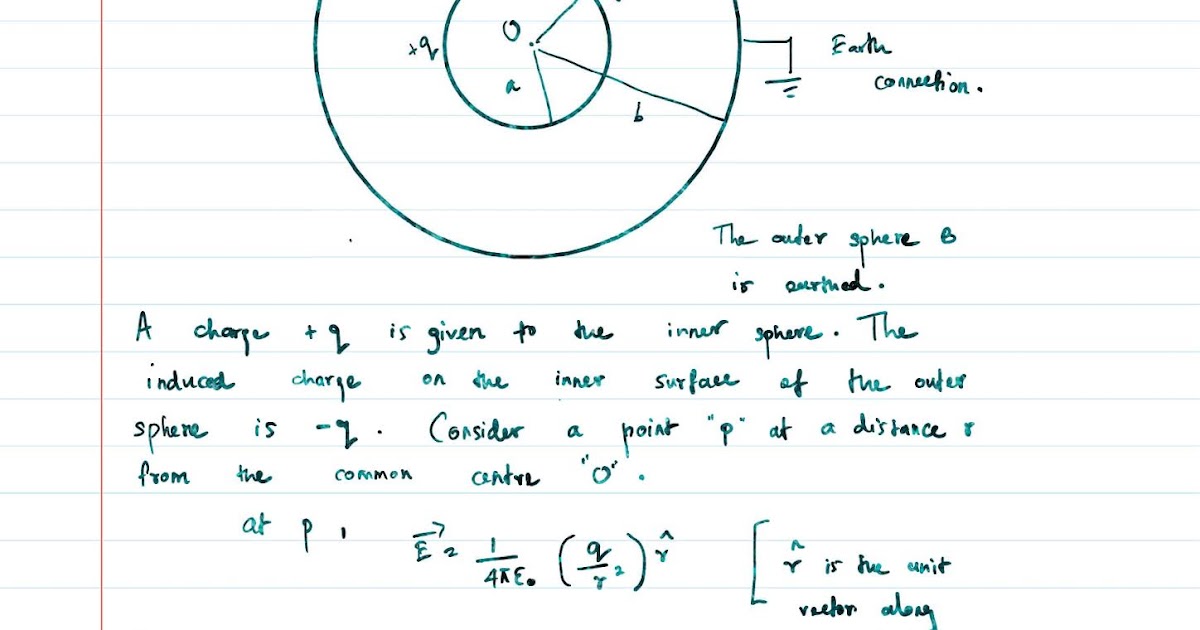 O
+q
a
b
Earth
connection.
The outer sphere B
is earthed.
A charge +q is given to the inner sphere. The
induced charge on the inner surface of the outer
sphere is -q. Consider a point "p" at a distance r
from the common centre "O".
at p, E⃗ = 1/4πε₀ (q/r²) r̂ [ r̂ is the unit
vector along